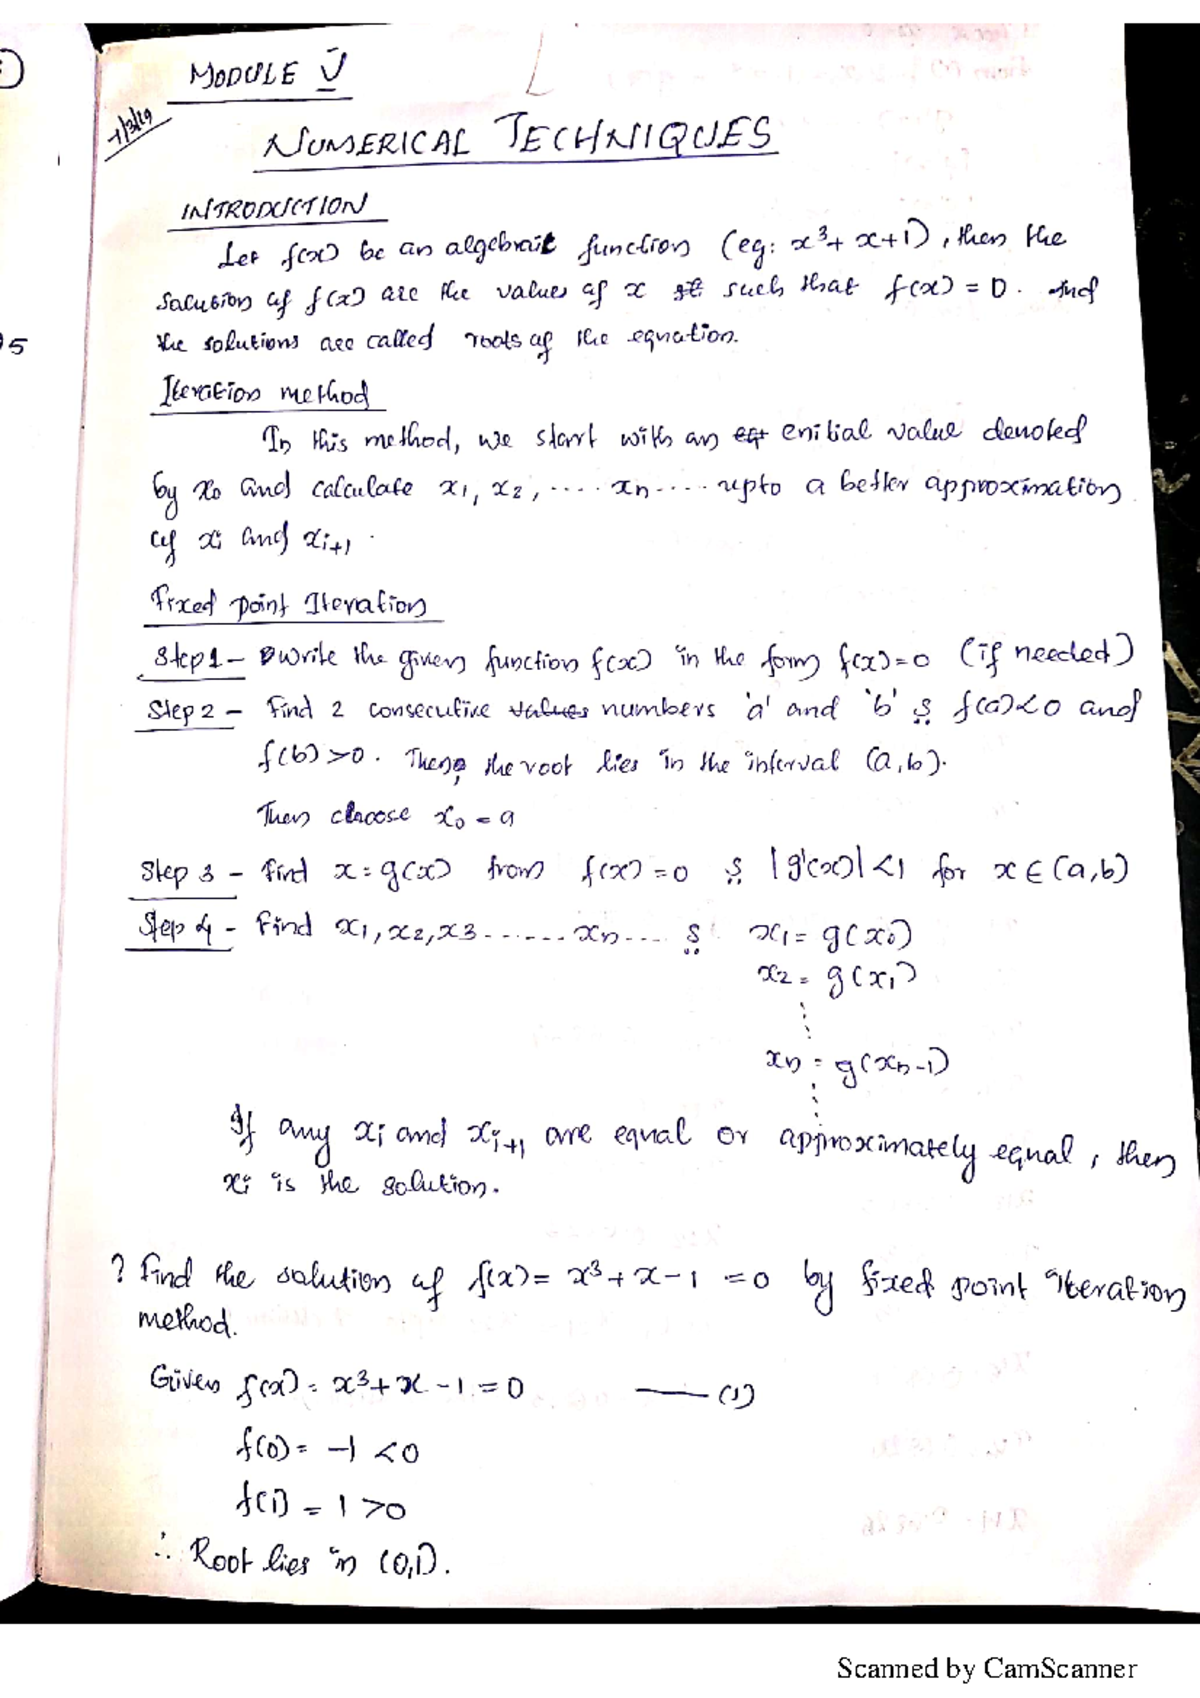 MODULE V
7/3/19
NUMERICAL TECHNIQUES
INTRODUCTION
Let f(x) be an algebraic function (eg: x³+x+1), then the
solution of f(x) are the values of x st such that f(x) = 0. And
the solutions are called roots of the equation.
5
Iteration method
In this method, we start with an enitial value denoted
by x₀ and calculate x₁, x₂, ..... xₙ .... upto a better approximation
of xᵢ and xᵢ₊₁.
Fixed point Iteration
Step 1 - write the given function f(x) in the form f(x)=0 (if needed)
Step 2 - Find 2 consecutive values numbers 'a' and 'b' s f(a)<0 and
f(b)>0. Then, the root lies in the interval (a,b).
Then choose x₀ = a
Step 3 - Find x = g(x) from f(x) = 0 s |g'(x)|<1 for x∈(a,b)
Step 4 - Find x₁, x₂, x₃ ...... xₙ .... s x₁ = g(x₀)
x₂ = g(x₁)
xₙ = g(xₙ-1)
If any xᵢ and xᵢ₊₁ are equal or approximately equal, then
xᵢ is the solution.
? Find the solution of f(x) = x³+x-1 = 0 by fixed point iteration
method.
Given f(x) = x³+x-1 = 0 —— (1)
f(0) = -1 <0
f(1) = 1 >0
∴ Root lies in (0,1).
Scanned by CamScanner